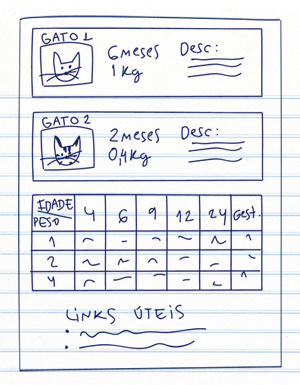 GATO 1
6 MESES Desc:
1 Kg
GATO 2
2 MESES Desc:
0,4Kg
IDADE
PESO 4 6 9 12 24 Gest.
1
2
4
LINKS ÚTEIS